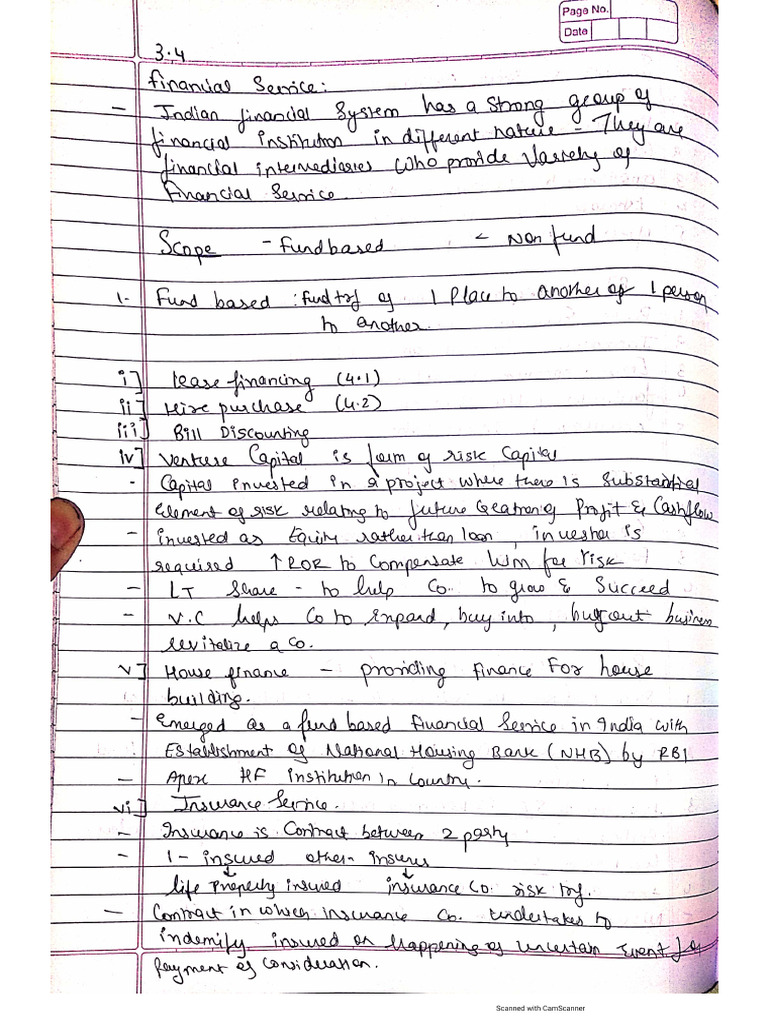 Page No.
Date
3.4
Financial Service:
- Indian financial System has a strong group of
financial institution in different nature - They are
financial intermediaries who provide Variety of
financial Service.
Scope - Fund based - Non fund
1. Fund based : fund trf of 1 Place to another or 1 person
to another.
i] lease financing (4.1)
ii] Hire purchase (4.2)
iii] Bill Discounting
iv] Venture Capital is form of risk Capital
- Capital invested in a project where there is substantial
element of risk relating to future creation of Profit & Cashflow
- invested as Equity rather than loan, investor is
required ↑ ROR to compensate him for risk
- LT share - to help Co. to grow & Succeed
- V.C helps Co to expand, buy into, buyout business
revitalize a Co.
v] House finance - providing finance For house
building.
- Emerged as a fund based financial Service in India with
Establishment of National Housing Bank (NHB) by RBI
- Apex HF institution in country.
vi] Insurance Service.
- Insurance is Contract between 2 party
- 1 - insured other - insurer
↓ ↓
life Property insured insurance Co. risk trf.
- Contract in which insurance Co. undertakes to
indemify insured on Happening of uncertain Event for
Payment of consideration.
Scanned with CamScanner